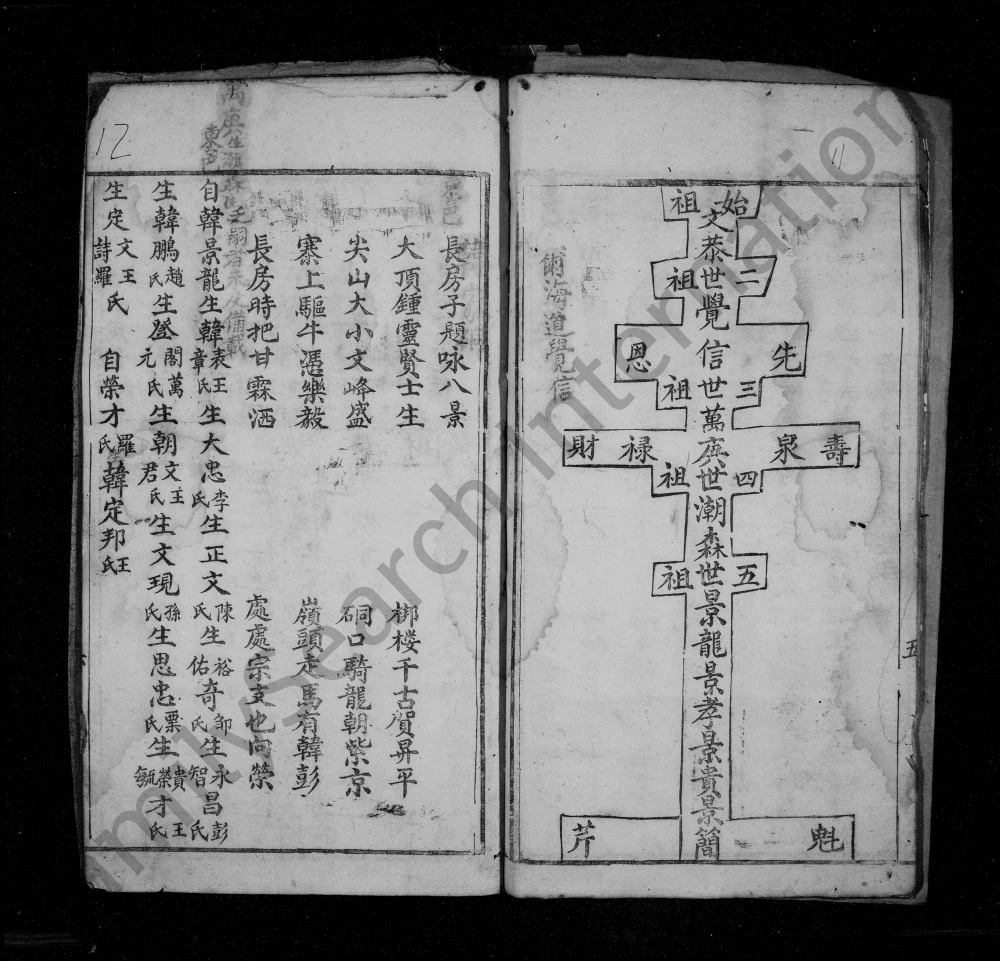 11
始祖
二世祖
三世祖
四世祖
五世祖
文恭
覺信
萬庚
潮森
景龍景孝景貴景簡
先恩
壽泉祿財
魁芹
海道覺信
五
12
長房子題咏八景
大頂鍾靈賢士生 梆楼千古賀昇平
尖山大小文峰盛 硐口騎龍朝紫京
寨上驅牛憑樂毅 嶺頭走馬有韓彭
長房時把甘霖洒 處處宗支也向榮
自韓景龍生韓表章王氏生大忠李氏生正文陳氏生裕佑奇鄒氏生永智昌彭氏
生韓鵬趙氏生登閣元萬氏生朝文君王氏生文現孫氏生思忠栗氏生貴榮毓才王氏
生定文詩王羅氏 自榮才羅氏韓定邦王氏
Family Search International